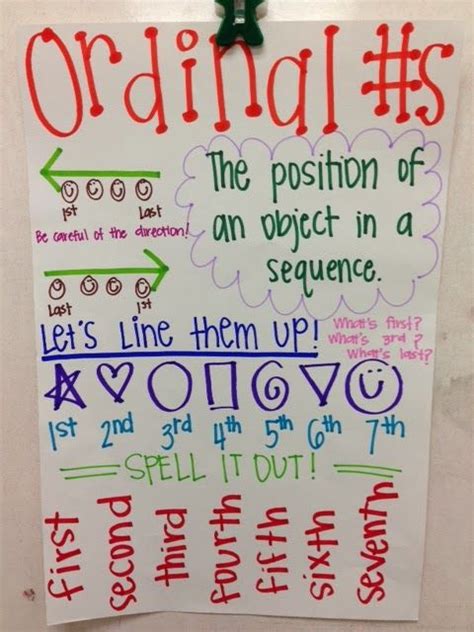 Ordinal #s
1st Last
Be careful of the direction!
Last 1st
The position of
an object in a
sequence.
Let's Line them up!
What's first?
What's 3rd?
What's last?
1st 2nd 3rd 4th 5th 6th 7th
SPELL IT OUT!
first second third fourth fifth sixth seventh